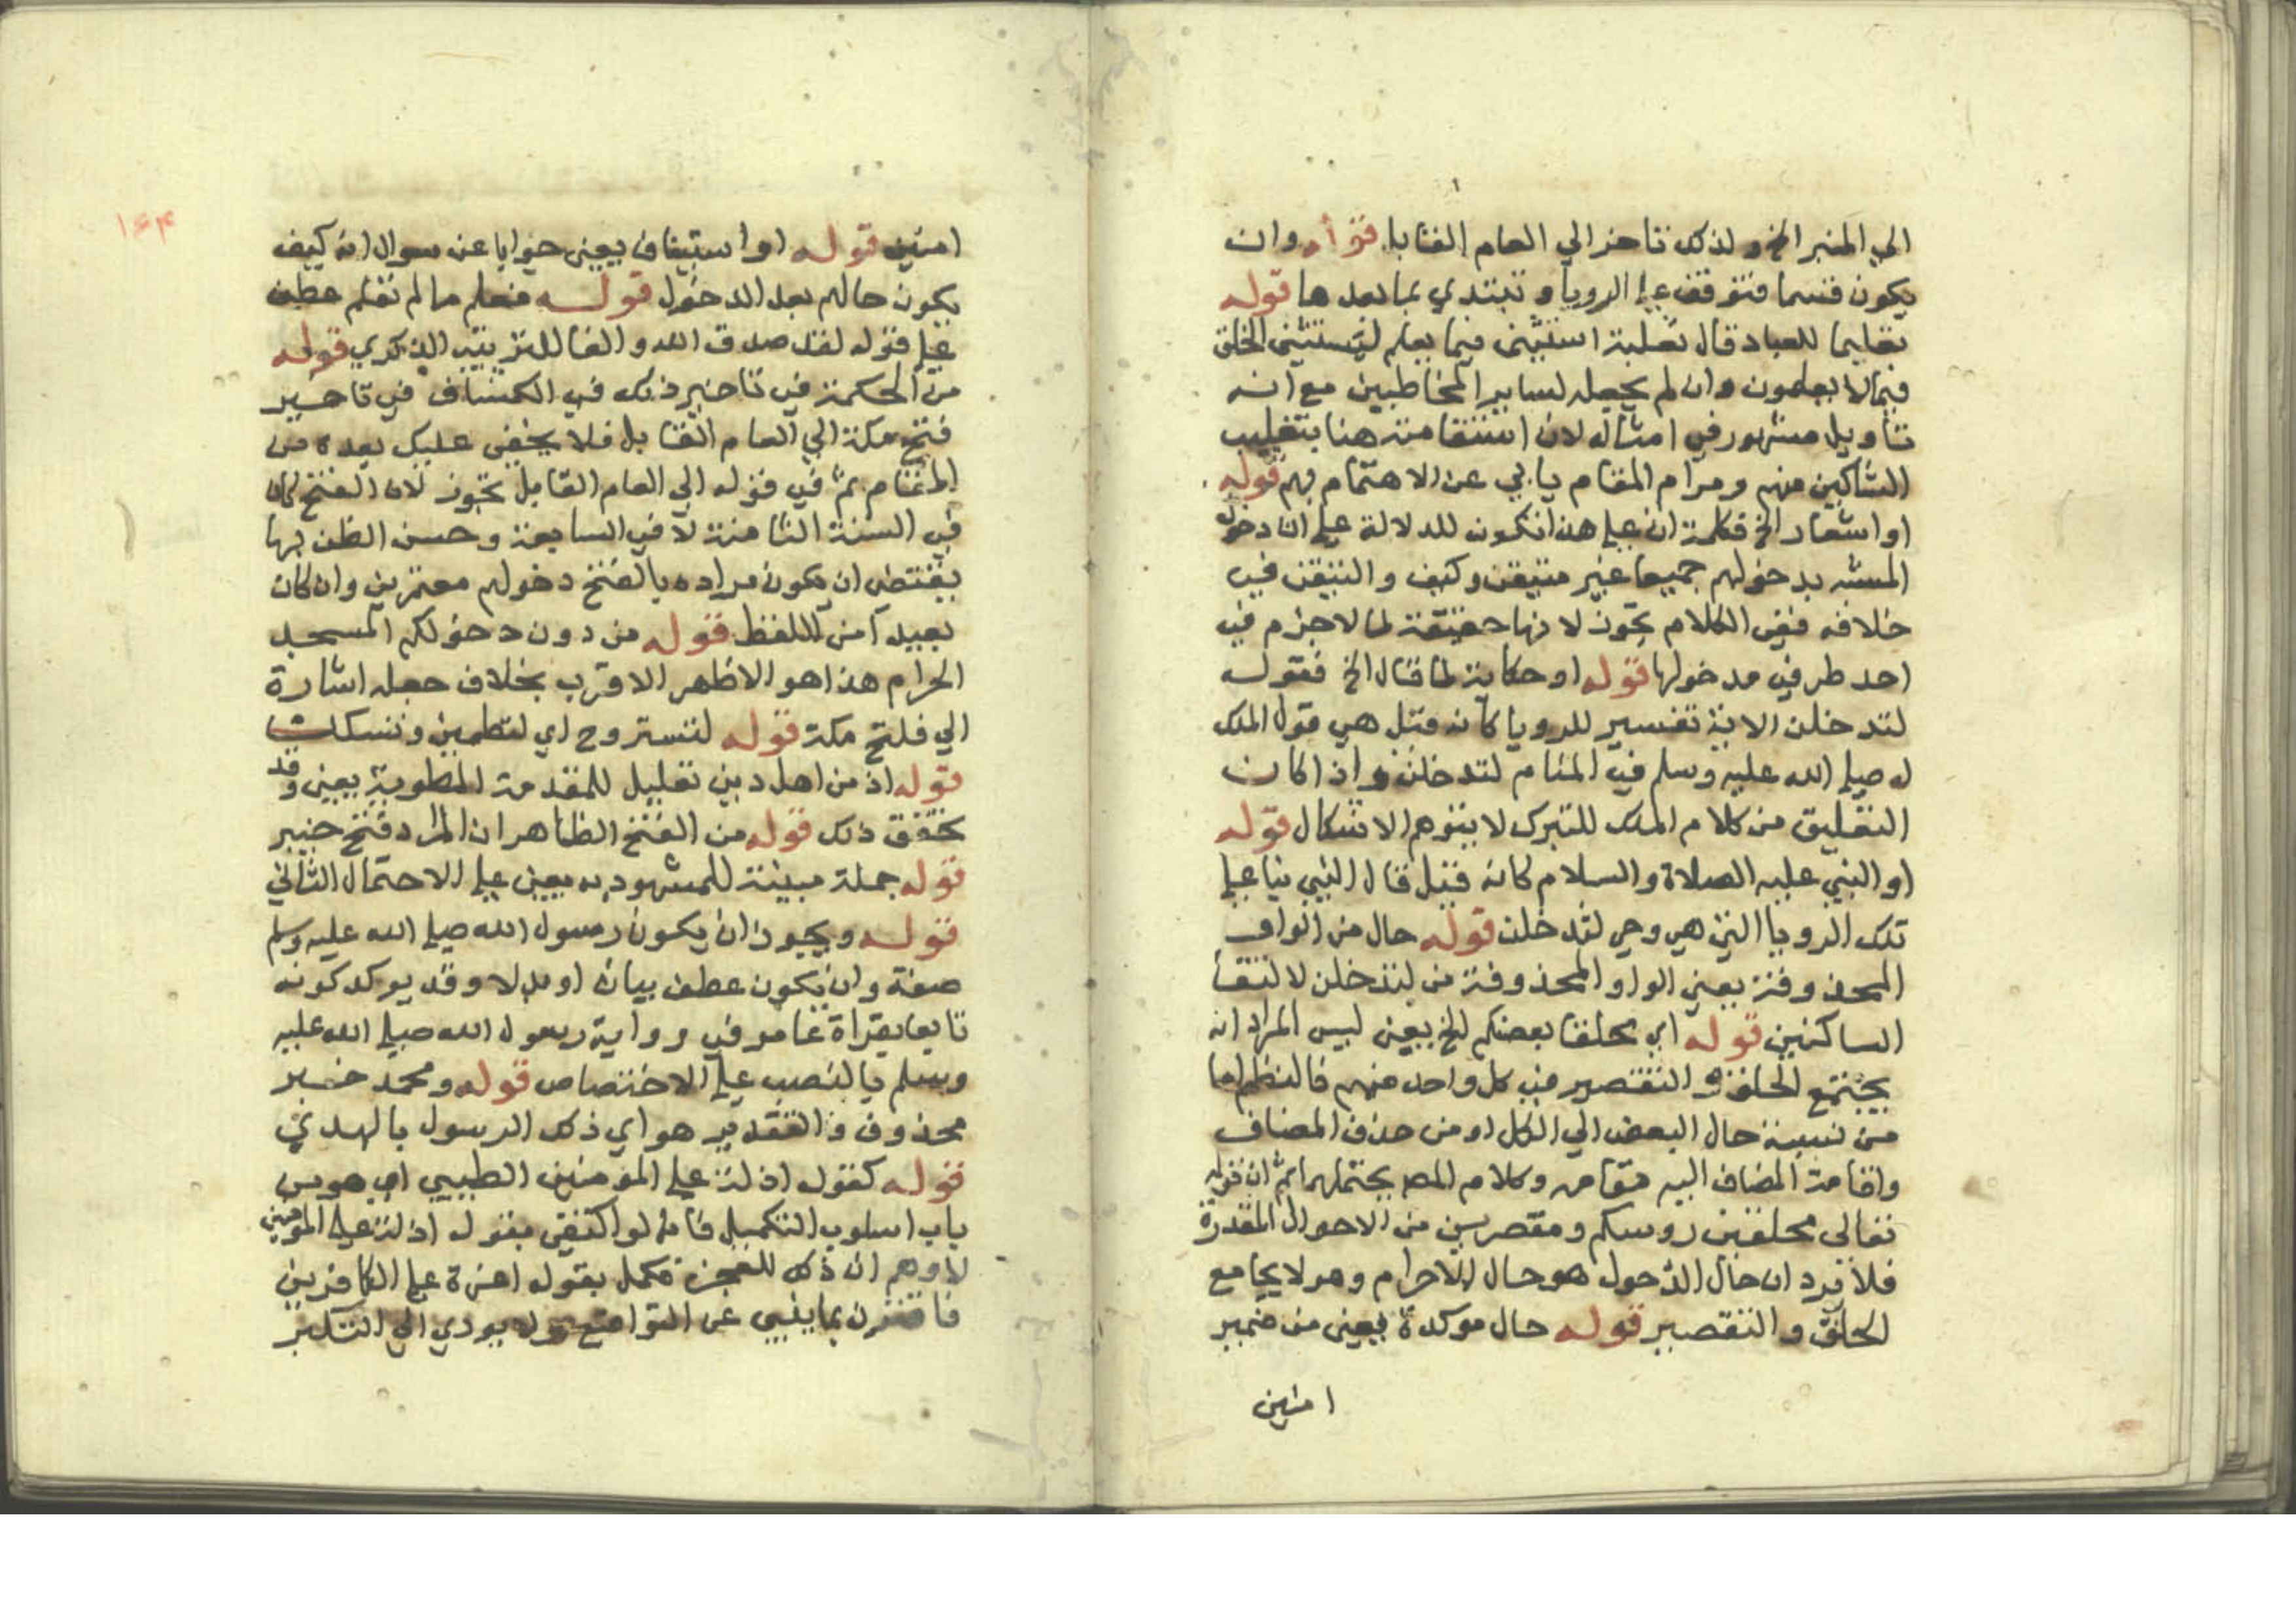 الي المنبر الخ ولذلك تاخر الي العام القابل قوله وان
يكون قسما فتوقف علي الرويا و تبتدي بما بعدها قوله
تعليما للعباد قال ثعلبة استثني فيما يعلم ليستثني الخلق
فيما لا يعلمون وان لم يجعله لساير المخاطبين مع انه
تاويل مشهور في امثاله لان استقامته هنا بتغليب
الشاكين منهم ومرام المقام يابي عن الاهتمام بهم قوله
او اشعار الخ فكلمة ان علي هذا تكون للدلالة علي ان دخول
المشبه بدخولهم جميعا غير متيقن وكيف والتيقن في
خلافه ففي الكلام تجوز لانها حقيقة لما لا جزم في
احد طرفي مدخولها قوله او حكاية لما قال الخ فقوله
لتدخلن الاية تفسير للرويا كانه قيل هي قول الملك
له صلي الله عليه وسلم في المنام لتدخلن واذا كان
التعليق من كلام الملك للتبرك لا يتوهم الاشكال قوله
او النبي عليه الصلاة والسلام كانه قيل قال النبي بنا علي
تلك الرويا التي هي وحي لتدخلن قوله حال من الواو
المحذوفة يعني الواو المحذوفة من لتدخلن لالتقا
الساكنين قوله اي محلقا بعضكم الخ يعني ليس المراد انه
يجتمع الحلق و التقصير في كل واحد منهم فالنظم اما
من نسبة حال البعض الي الكل او من حذف المضاف
واقامة المضاف اليه مقامه وكلام المص يحتملهما ثم ان قوله
تعالي محلقين روسكم ومقصرين من الاحوال المقدرة
فلا يرد ان حال الدخول هو حال الاحرام وهو لا يجامع
الحلق و التقصير قوله حال موكدة يعني من ضمير
امنين
١٦٣
امنين قوله او استيناف يعني جوابا عن سوال انه كيف
يكون حالهم بعد الدخول قوله فعلم ما لم تعلم عطف
علي قوله لقد صدق الله والفا للترتيب الذكري قوله
من الحكمة في تاخير ذلك في الكشاف في تاخير
فتح مكة الي العام القابل فلا يخفي عليك بعده من
المقام ثم في قوله الي العام القابل تجوز لان الفتح كان
في السنة الثامنة لا في السابعة وحسن الظن بها
يقتضي ان يكون مراده بالفتح دخولهم معتمرين وان كان
بعيدا من اللفظ قوله من دون دخولكم المسجد
الحرام هذا هو الاظهر الاقرب بخلاف جعله اشارة
الي فتح مكة قوله لتستروح اي لتطمين وتسكن
قوله اذ من اهل دين تعليل للمقدمة المطوية يعني وقد
تحقق ذلك قوله من الفتح الظاهر ان المراد فتح خيبر
قوله جملة مبينة للمشهود به يعني علي الاحتمال الثاني
قوله ويجوز ان يكون رسول الله صلي الله عليه وسلم
صفة وان يكون عطف بيان او بدلا وقد يوكد كونه
تابعا بقراة عامر في رواية رسول الله صلي الله عليه
وسلم بالنصب علي الاختصاص قوله ومحمد خبر
محذوف والتقدير هو اي ذلك الرسول بالهدي
قوله كقوله اذلة علي المومنين الطيبي اي هو من
باب اسلوب التكميل فانه لو اكتفي بقوله اذلة علي المومنين
لاوهم ان ذلك للعجز فكمل بقوله اعزة علي الكافرين
بما ينبي عن التواضع ولا يودي الي التكبر